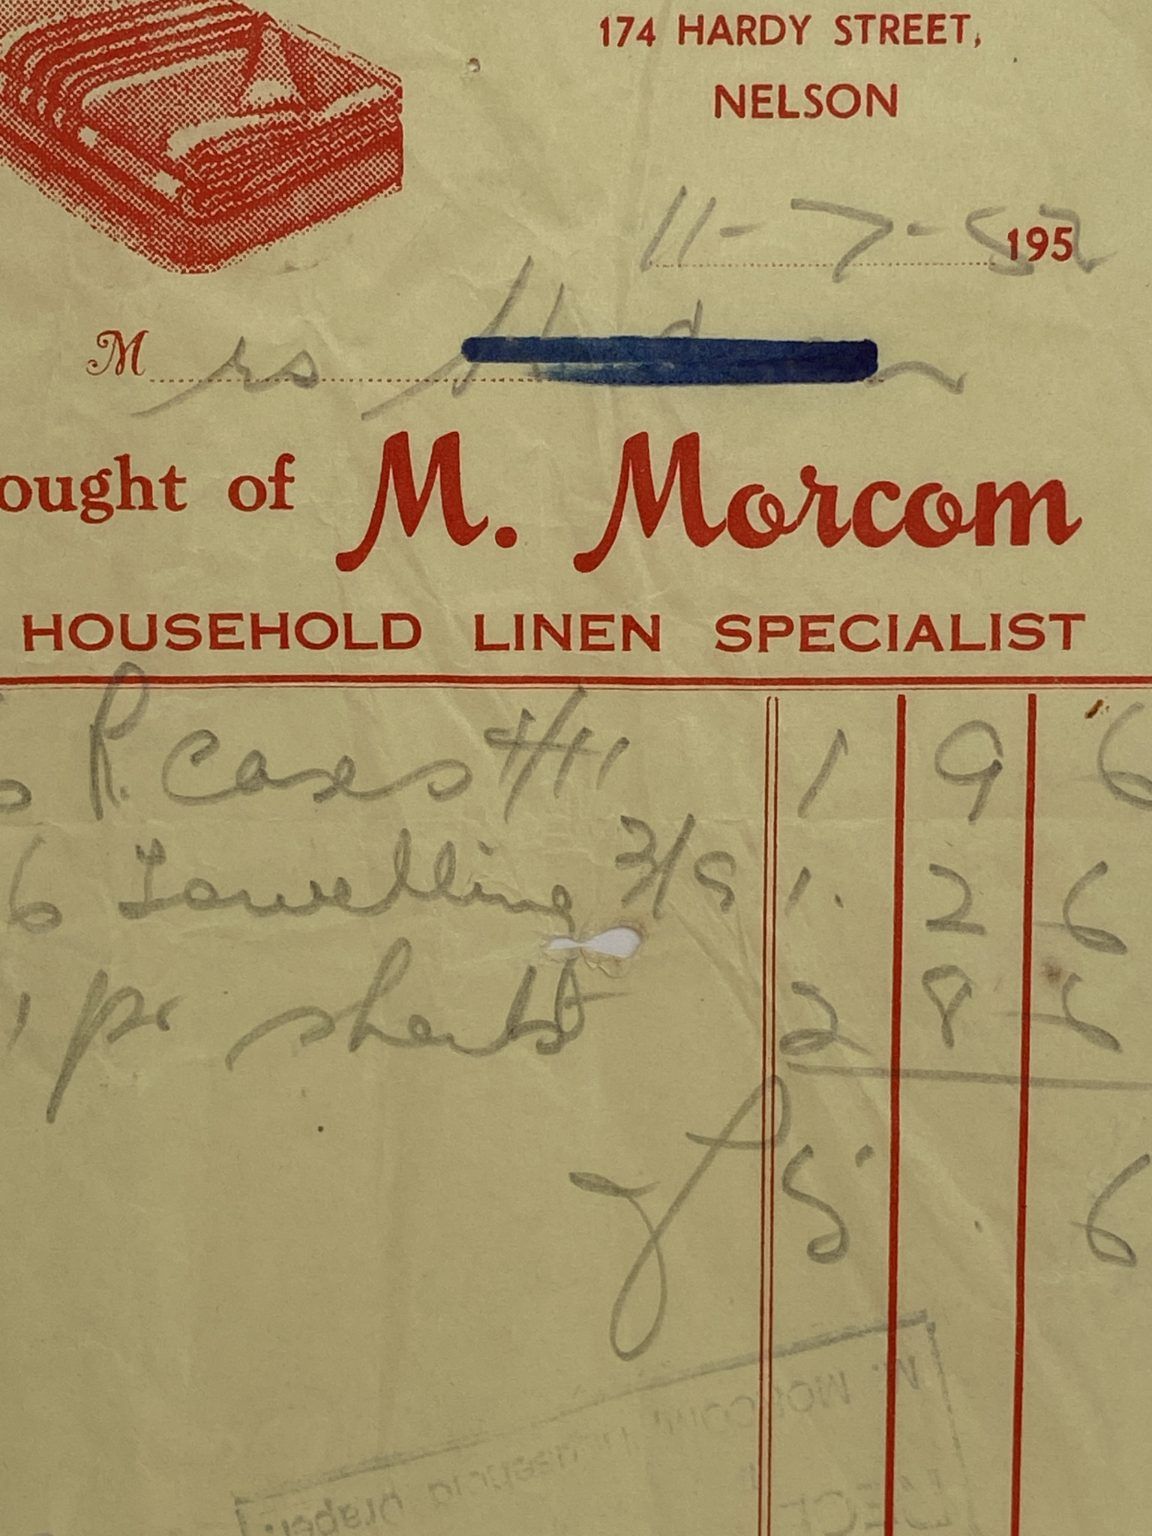 174 HARDY STREET,
NELSON
11-7-52 195
M rs
ought of M. Morcom
HOUSEHOLD LINEN SPECIALIST
6 P. Cases 4/11 1 9 6
6 Towelling 3/9 1. 2 6
1 pr sheets 2 8 6
£ 5. . 6
M. MORCOM
draper